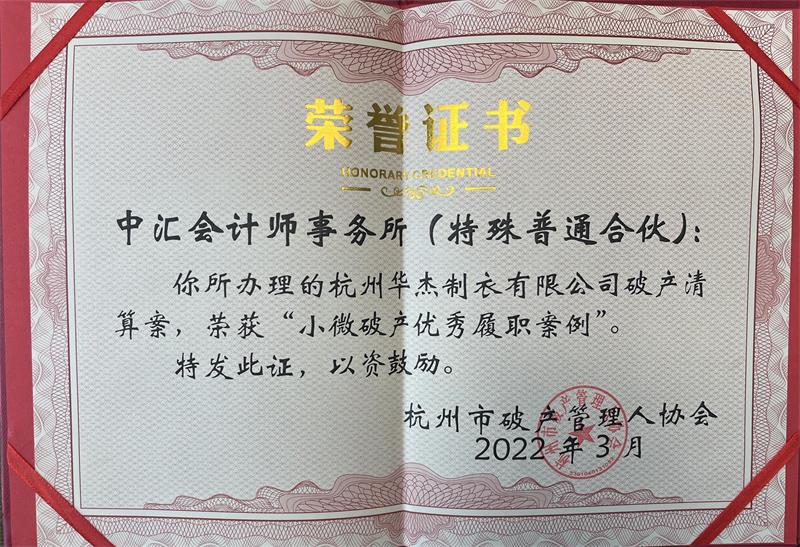 荣誉证书
HONORARY CREDENTIAL
中汇会计师事务所（特殊普通合伙）：
你所办理的杭州华杰制衣有限公司破产清
算案，荣获“小微破产优秀履职案例”。
特发此证，以资鼓励。
杭州市破产管理人协会
2022年3月
杭州市破产管理人协会